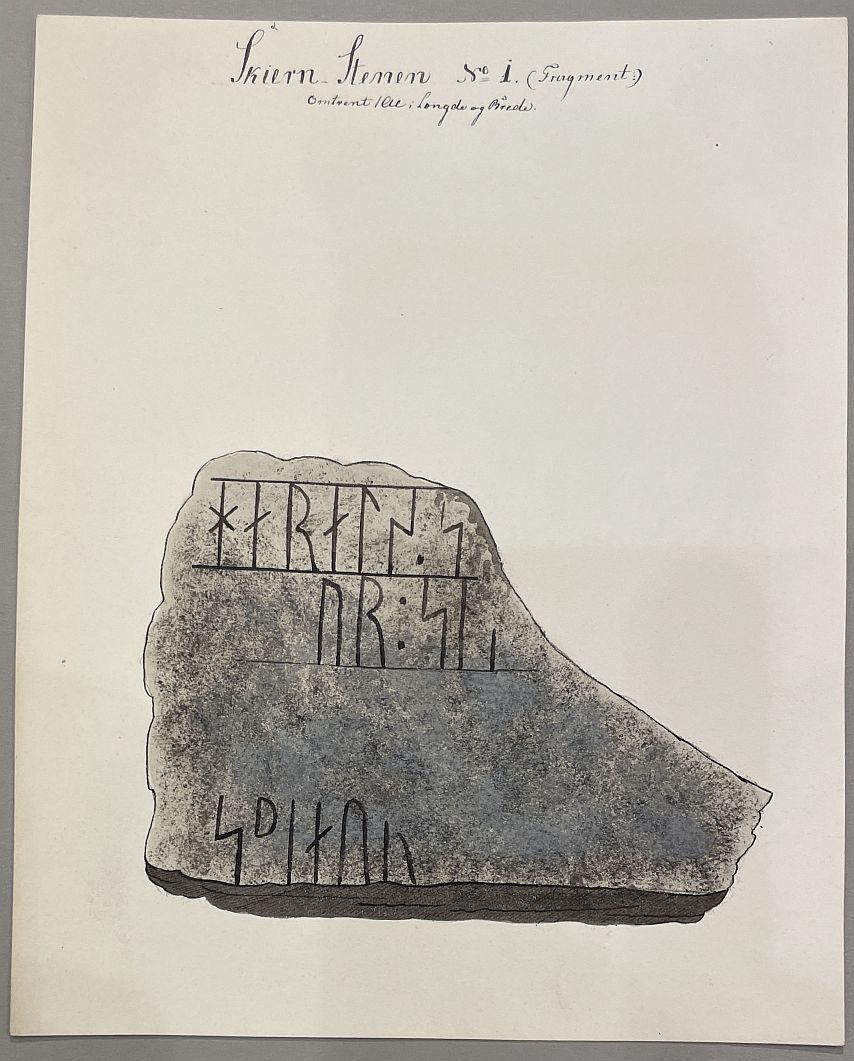 Skiern-Stenen No 1. (Fragment:)
Omtrent 1 Al: i Længde og Brede.
ᚼᛅᚱᛅᛚᛋ:ᛋ
ᚢᚱ:ᛋᛐᛁ
ᛋᚦᛁᛅᚢ